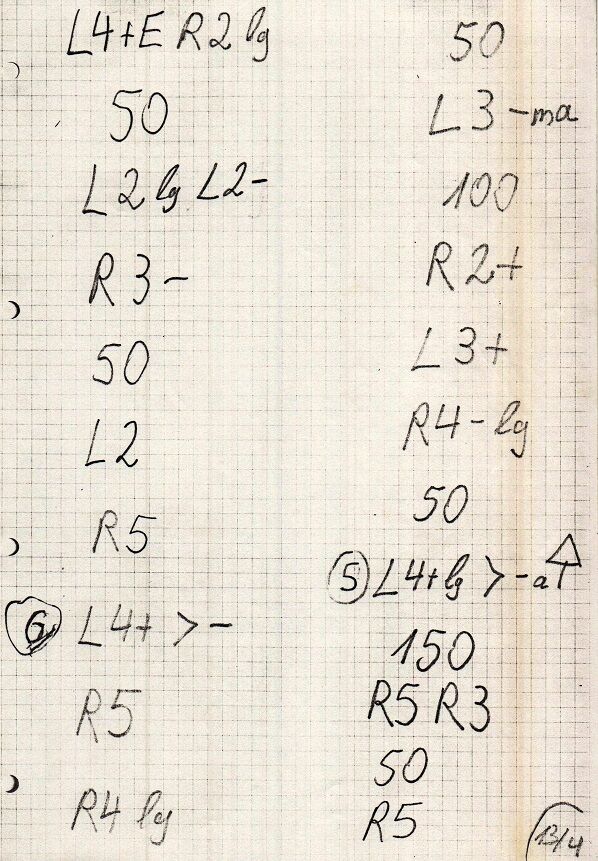 L4+E R2 lg
50
L2 lg L2-
R3-
50
L2
R5
6 L4+ >-
R5
R4 lg
50
L3-ma
100
R2+
L3+
R4- lg
50
5 L4+lg >-a
150
R5 R3
50
R5
13/4